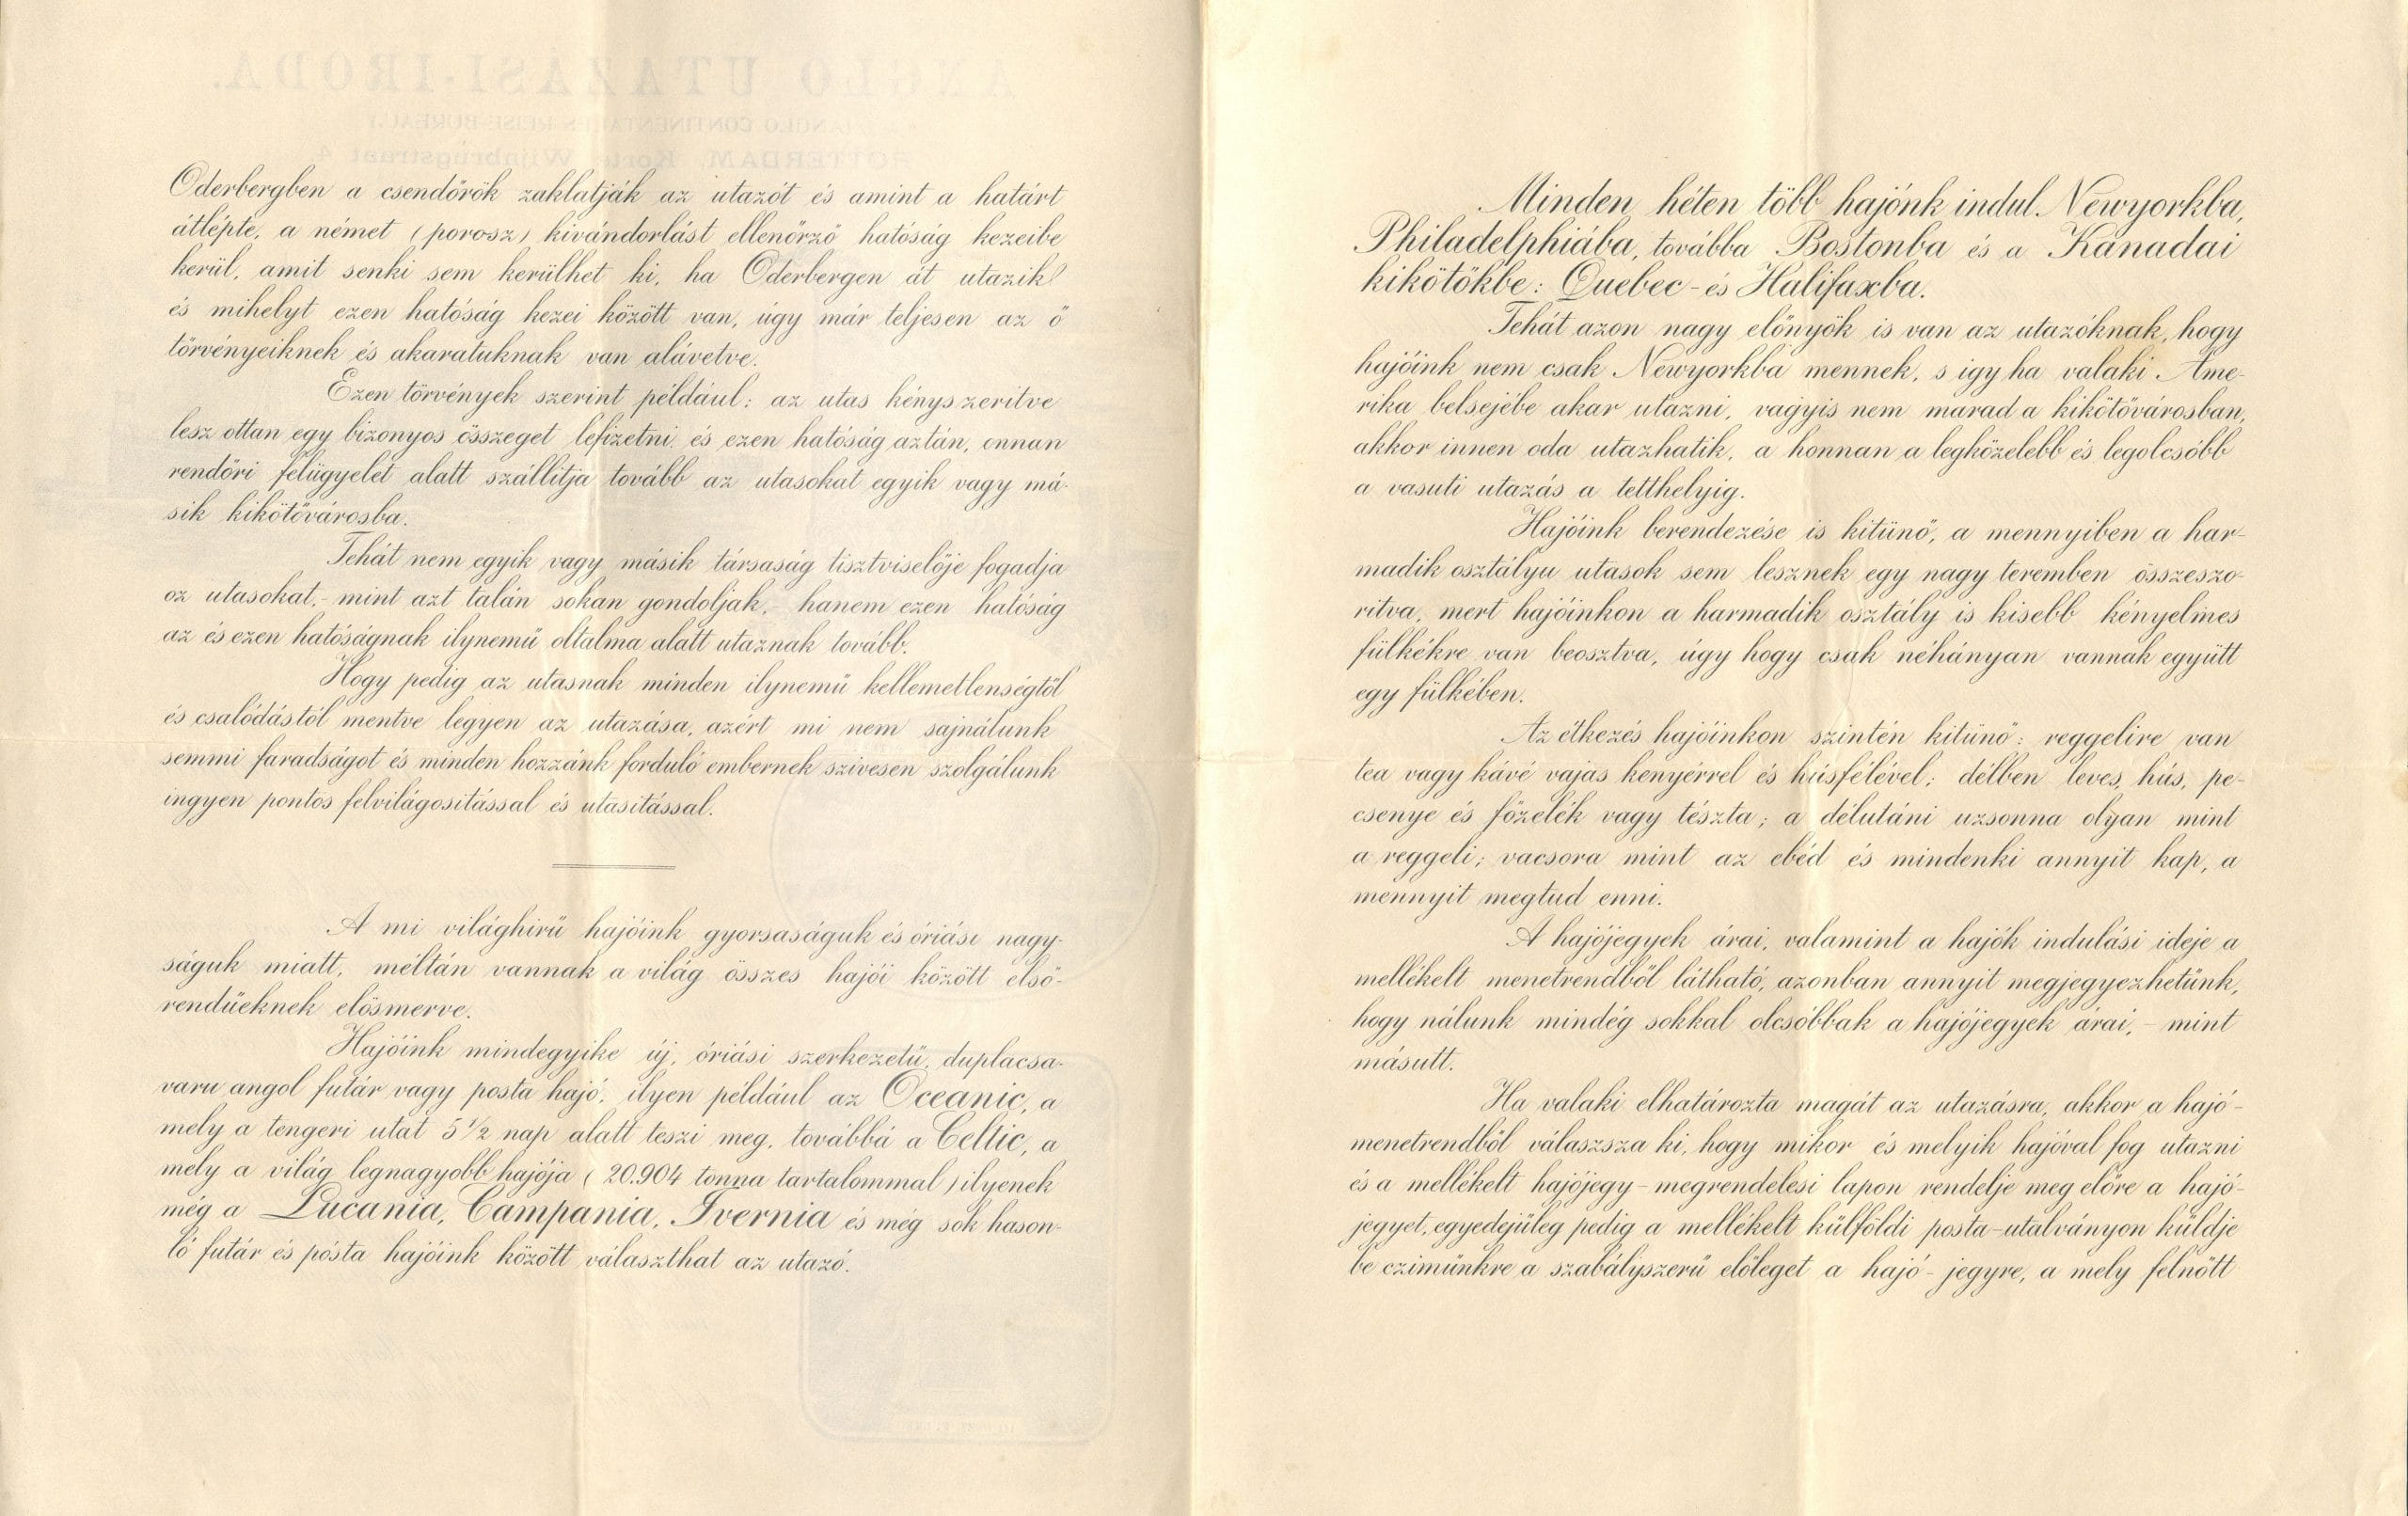 Oderbergben a csendőrök zaklatják az utazót és amint a határt
átlépte, a német (porosz) kivándorlást ellenőrző hatóság kezeibe
kerül, amit senki sem kerülhet ki, ha Oderbergen át utazik!
és mihelyt ezen hatóság kezei között van, úgy már teljesen az ő
törvényeiknek és akaratuknak van alávetve.
Ezen törvények szerint például: az utas kényszeritve
lesz ottan egy bizonyos összeget lefizetni és ezen hatóság aztán, onnan
rendőri felügyelet alatt szállitja tovább az utasokat egyik vagy má-
sik kikötővárosba.
Tehát nem egyik vagy másik társaság tisztviselője fogadja
oz utasokat,- mint azt talán sokan gondolják, hanem ezen hatóság
az és ezen hatóságnak ilynemű oltalma alatt utaznak tovább.
Hogy pedig az utasnak minden ilynemű kellemetlenségtől
és csalódástól mentve legyen az utazása, azért mi nem sajnálunk
semmi faradságot és minden hozzánk forduló embernek szivesen szolgálunk
ingyen pontos felvilágositással és utasitással.
A mi világhirű hajóink gyorsaságuk és óriási nagy-
ságuk miatt, méltán vannak a világ összes hajói között első-
rendüeknek elösmerve.
Hajóink mindegyike új, óriási szerkezetű, duplacsa-
varu angol futár vagy posta hajó, ilyen például az Oceanic, a
mely a tengeri utat 5 1/2 nap alatt teszi meg, továbbá a Celtic, a
mely a világ legnagyobb hajója (20.904 tonna tartalommal) ilyenek
még a Lucania, Campania, Ivernia és még sok hason-
ló futár és pósta hajóink között választhat az utazó.
Minden héten több hajónk indul Newyorkba,
Philadelphiába, továbba Bostonba és a Kanadai
kikötőkbe: Quebec- és Halifaxba.
Tehát azon nagy előnyök is van az utazóknak, hogy
hajóink nem csak Newyorkba mennek, s igy ha valaki Ame-
rika belsejébe akar utazni, vagyis nem marad a kikötővárosban,
akkor innen oda utazhatik, a honnan a legközelebb és legolcsóbb
a vasuti utazás a tetthelyig.
Hajóink berendezése is kitünő, a mennyiben a har-
madik osztályu utasok sem lesznek egy nagy teremben összeszo-
ritva, mert hajóinkon a harmadik osztály is kisebb kényelmes
fülkékre van beosztva, úgy hogy csak néhányan vannak együtt
egy fülkében.
Az étkezés hajóinkon szintén kitünő: reggelire van
tea vagy kávé vajas kenyérrel és húsfélével; délben leves, hús, pe-
csenye és főzelék vagy tészta; a délutáni uzsonna olyan mint
a reggeli; vacsora mint az ebéd és mindenki annyit kap, a
mennyit megtud enni.
A hajójegyek árai, valamint a hajók indulási ideje a
mellékelt menetrendből látható, azonban annyit megjegyezhetünk,
hogy nálunk mindég sokkal olcsóbbak a hajójegyek árai, - mint
másutt.
Ha valaki elhatározta magát az utazásra, akkor a hajó-
menetrendből válaszsza ki, hogy mikor és melyik hajóval fog utazni
és a mellékelt hajójegy-megrendelési lapon rendelje meg előre a hajó-
jegyet, egyedejüleg pedig a mellékelt külföldi posta-utalványon küldje
be czimünkre a szabályszerű előleget a hajó-jegyre, a mely felnőtt